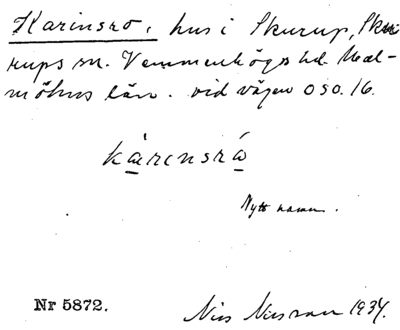 Karinsro, hus i Skurup, Sku-
rups sn. Vemmenhögs hd. Mal-
möhus län. vid vägen OSO. 16.
kárensrá
Nytt namn.
Nr 5872.
Nils Nilsson 1934.